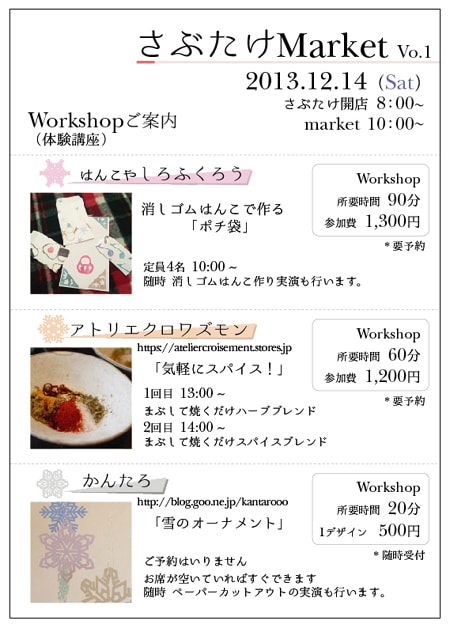 さぶたけMarket Vo.1
2013.12.14（Sat）
さぶたけ開店 8：00~
market 10：00~
Workshopご案内
（体験講座）
はんこやしろふくろう
消しゴムはんこで作る
「ポチ袋」
定員4名 10:00 ~
随時 消しゴムはんこ作り実演も行います。
Workshop
所要時間 90分
参加費 1,300円
*要予約
アトリエクロワズモン
https://ateliercroisement.stores.jp
「気軽にスパイス！」
1回目 13:00 ~
まぶして焼くだけハーブブレンド
2回目 14:00 ~
まぶして焼くだけスパイスブレンド
Workshop
所要時間 60分
参加費 1,200円
*要予約
かんたろ
http://blog.goo.ne.jp/kantarooo
「雪のオーナメント」
ご予約はいりません
お席が空いていればすぐできます
随時 ペーパーカットアウトの実演も行います。
Workshop
所要時間 20分
1デザイン 500円
*随時受付